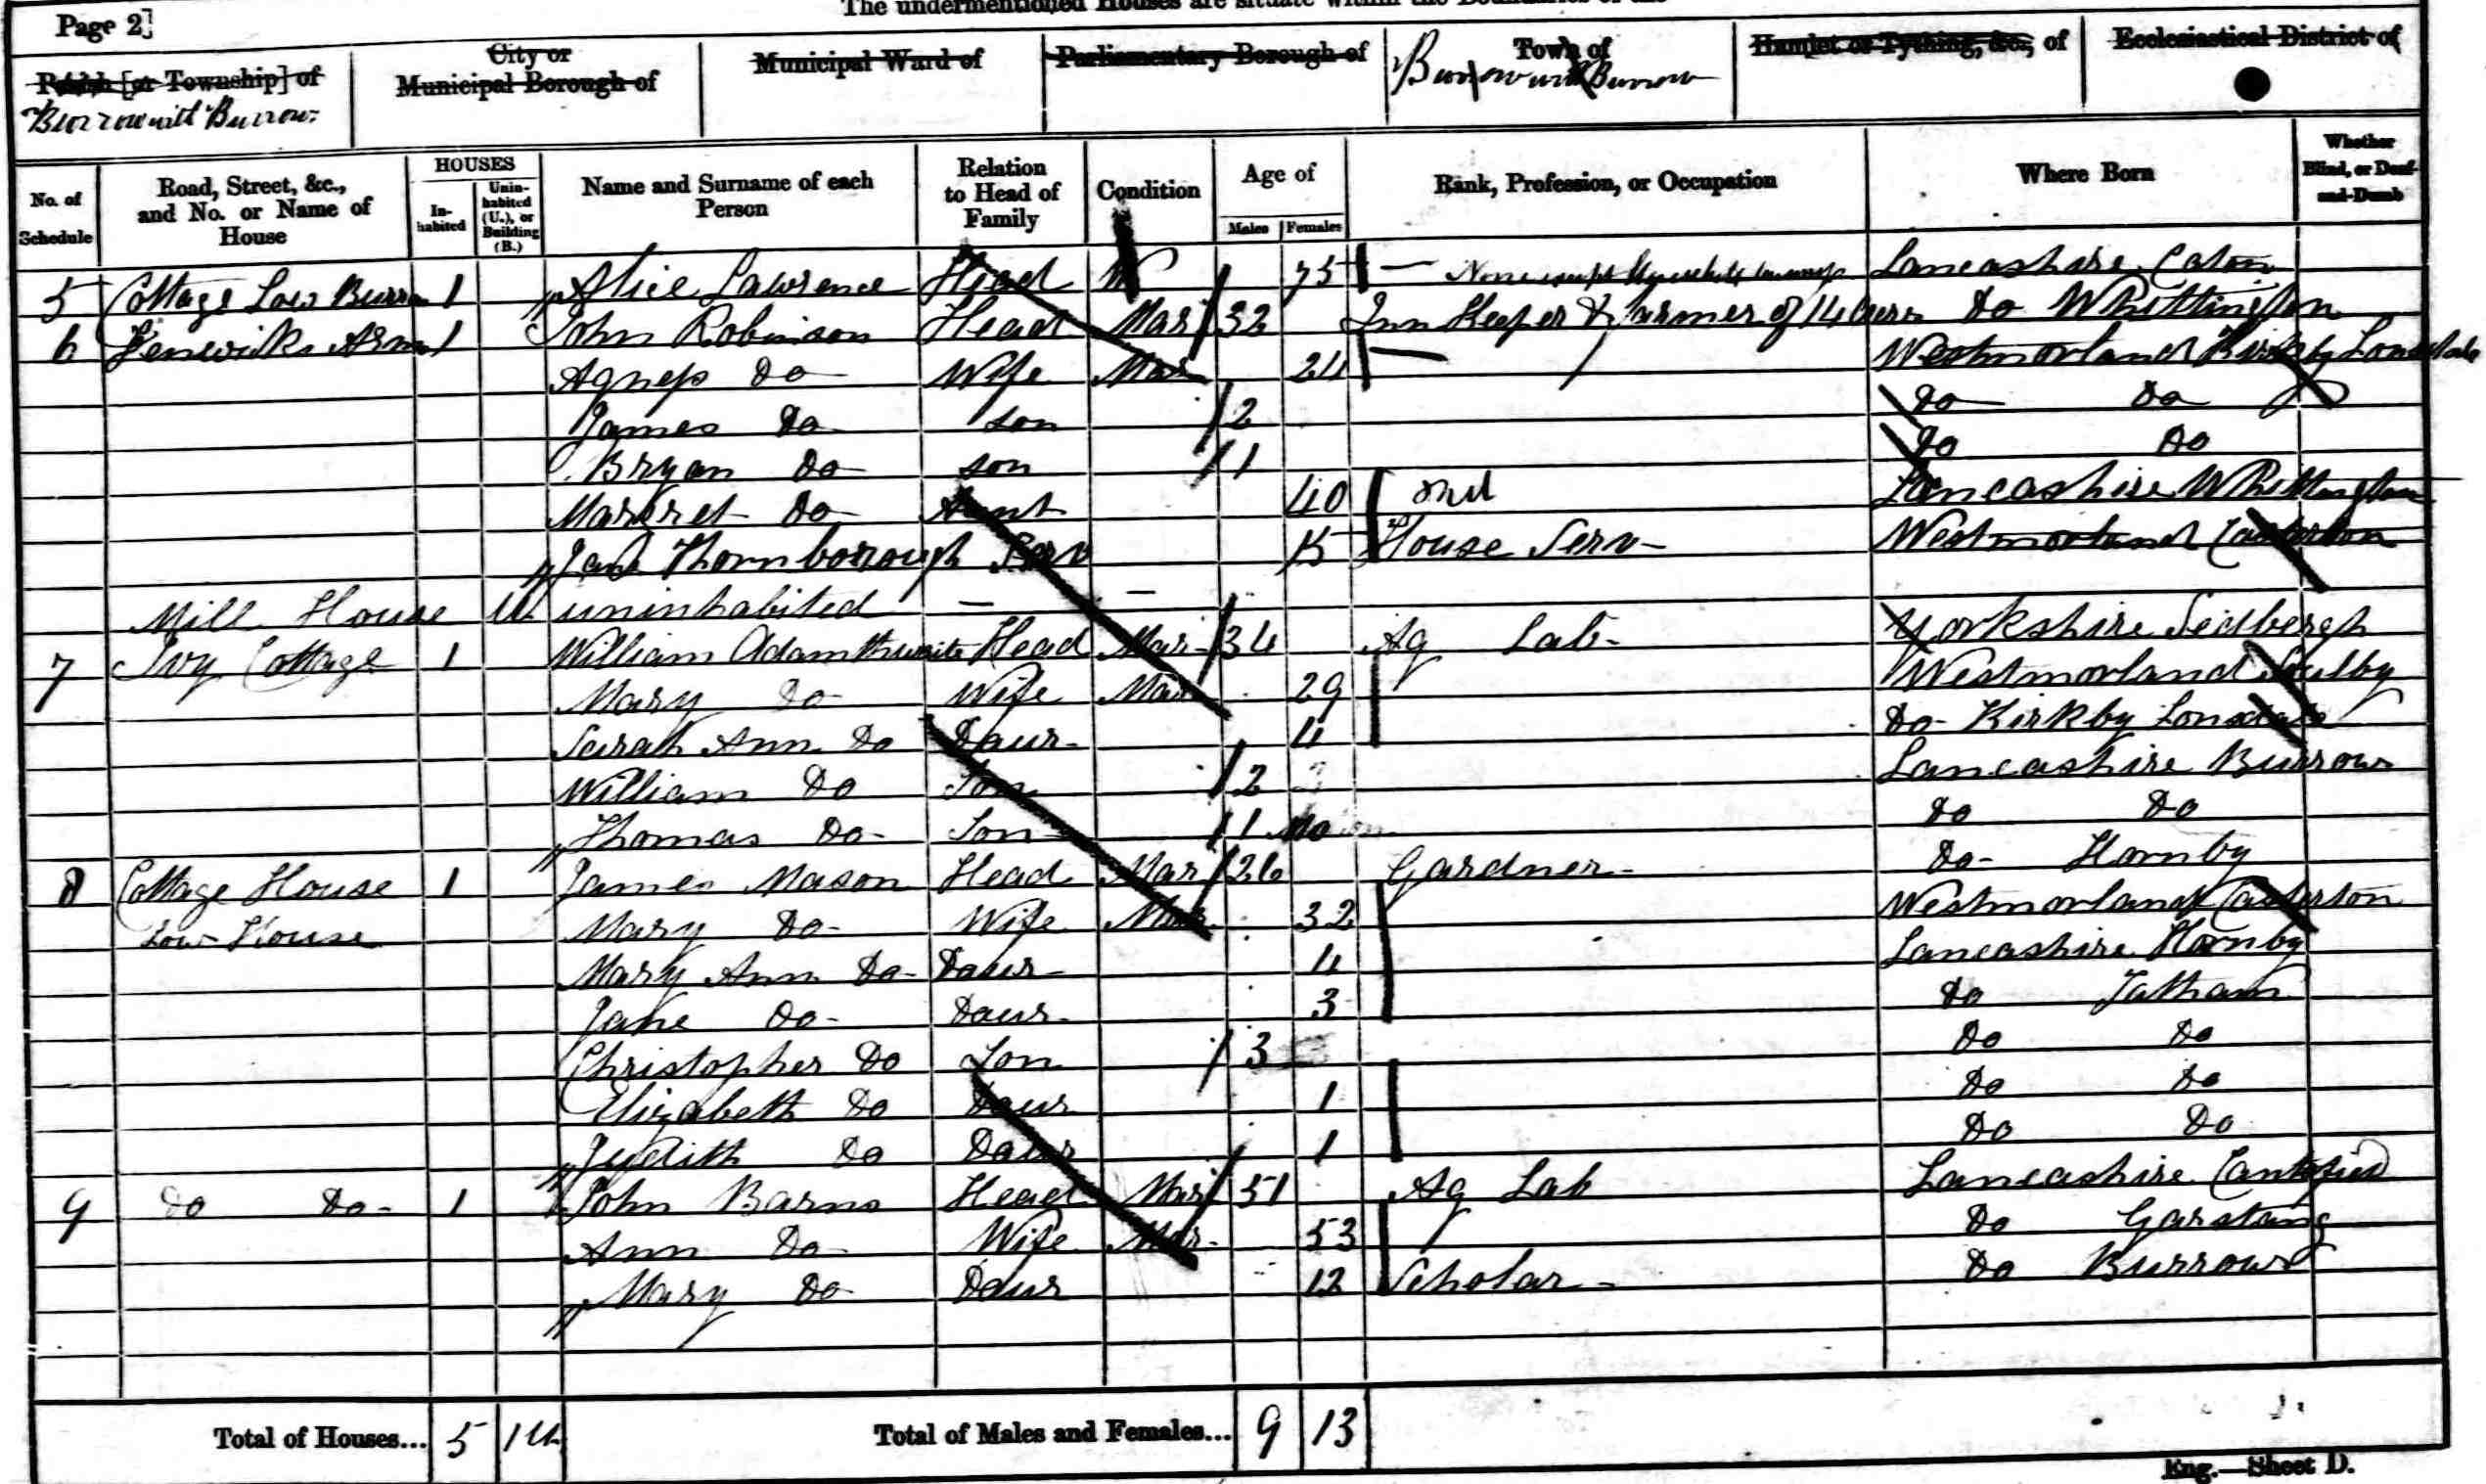 The undermentioned Houses are situate within the Boundaries of the
Page 2]
Parish [or Township] of
City or Municipal Borough of
Municipal Ward of
Parliamentary Borough of
Town of
Hamlet or Tything, &c., of
Ecclesiastical District of
Burrow with Burrow
Burrow with Burrow
No. of Schedule
Road, Street, &c., and No. or Name of House
HOUSES
In-habited
Unin-habited (U.), or Building (B.)
Name and Surname of each Person
Relation to Head of Family
Condition
Age of
Males
Females
Rank, Profession, or Occupation
Where Born
Whether Blind, or Deaf-and-Dumb
5 Cottage Low Burrow 1 Alice Lawrence Head W 75 — None Lancashire Caton
6 Fenwicks Arms 1 John Robinson Head Mar 32 Inn Keeper & Farmer of 14 acres Do Whittington
Agness Do Wife Mar 24 — Westmorland Kirkby Lonsdale
James Do Son 2 Do Do
Bryan Do Son 1 Do Do
Margret Do Aunt 40 Lancashire Whittington
Jane Thornborough Serv 15 House Serv Westmorland Casterton
Mill House U uninhabited — —
7 Ivy Cottage 1 William Adamthwaite Head Mar 34 Ag Lab Yorkshire Sedbergh
Mary Do Wife Mar 29 Westmorland Soulby
Sarah Ann Do Daur 4 Do Kirkby Lonsdale
William Do Son 2 Lancashire Burrow
Thomas Do Son 1 Mo Do Do
8 Cottage House 1 James Mason Head Mar 26 Gardner Do Hornby
Low House Mary Do Wife Mar 32 Westmorland Casterton
Mary Ann Do Daur 4 Lancashire Hornby
Jane Do Daur 3 Do Tatham
Christopher Do Son 3 Do Do
Elizabeth Do Daur 1 Do Do
Judith Do Daur 1 Do Do
9 Do Do 1 John Barns Head Mar 51 Ag Lab Lancashire Cantsfield
Ann Do Wife Mar 53 Do Garstang
Mary Do Daur 12 Scholar Do Burrow
Total of Houses... 5 1U Total of Males and Females... 9 13
Eng.—Sheet D.